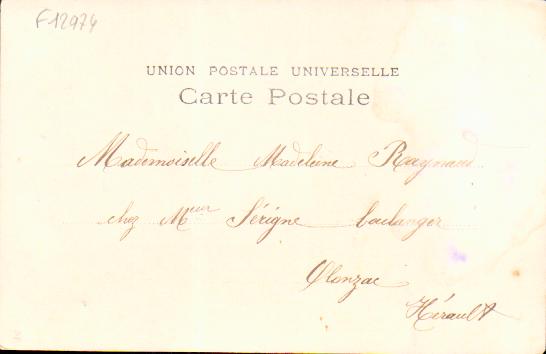 F12974
UNION POSTALE UNIVERSELLE
Carte Postale
Mademoiselle Madeleine Raynaud
chez Meur Sérigne boulanger
Olonzac
Hérault